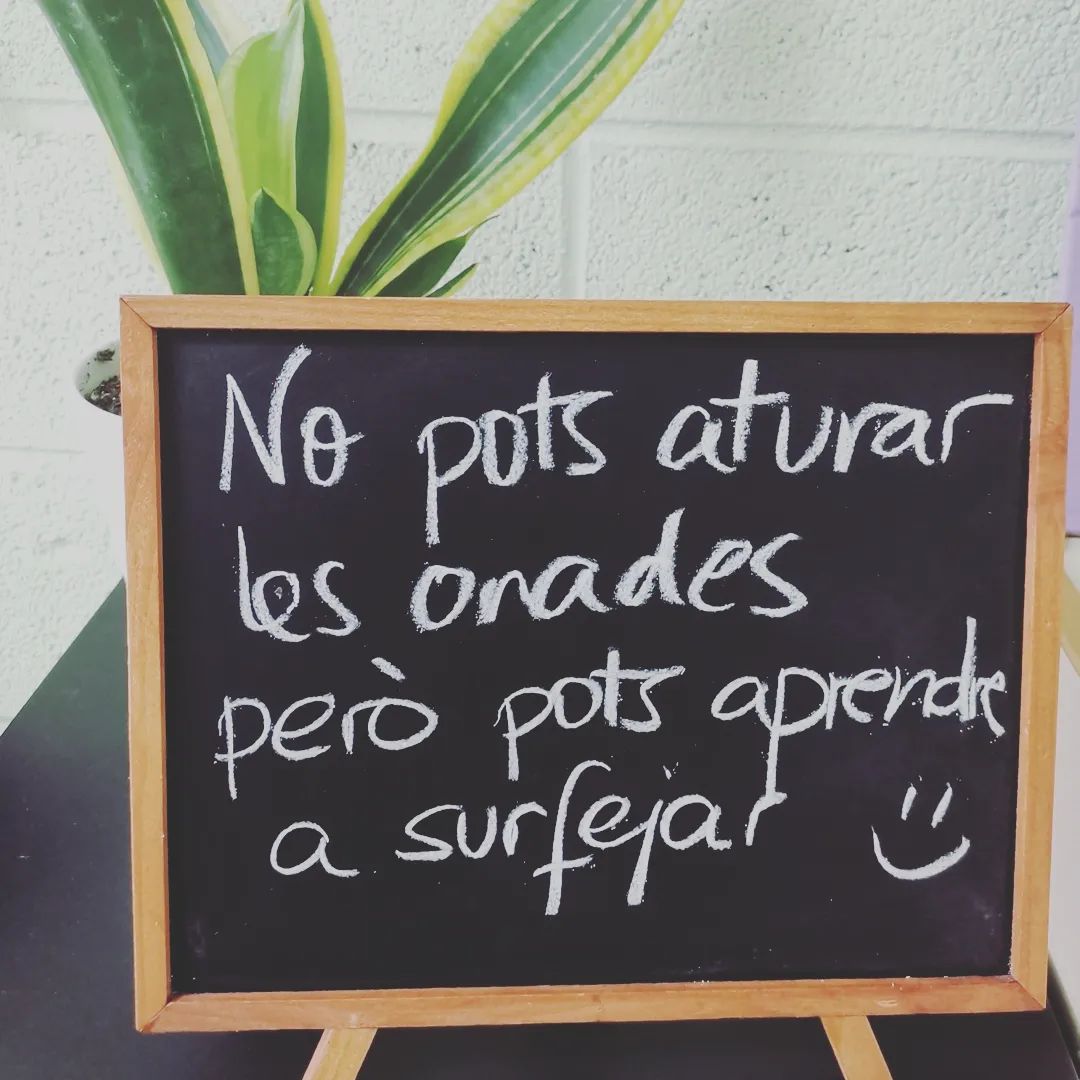 No pots aturar
les onades
però pots aprendre
a surfejar